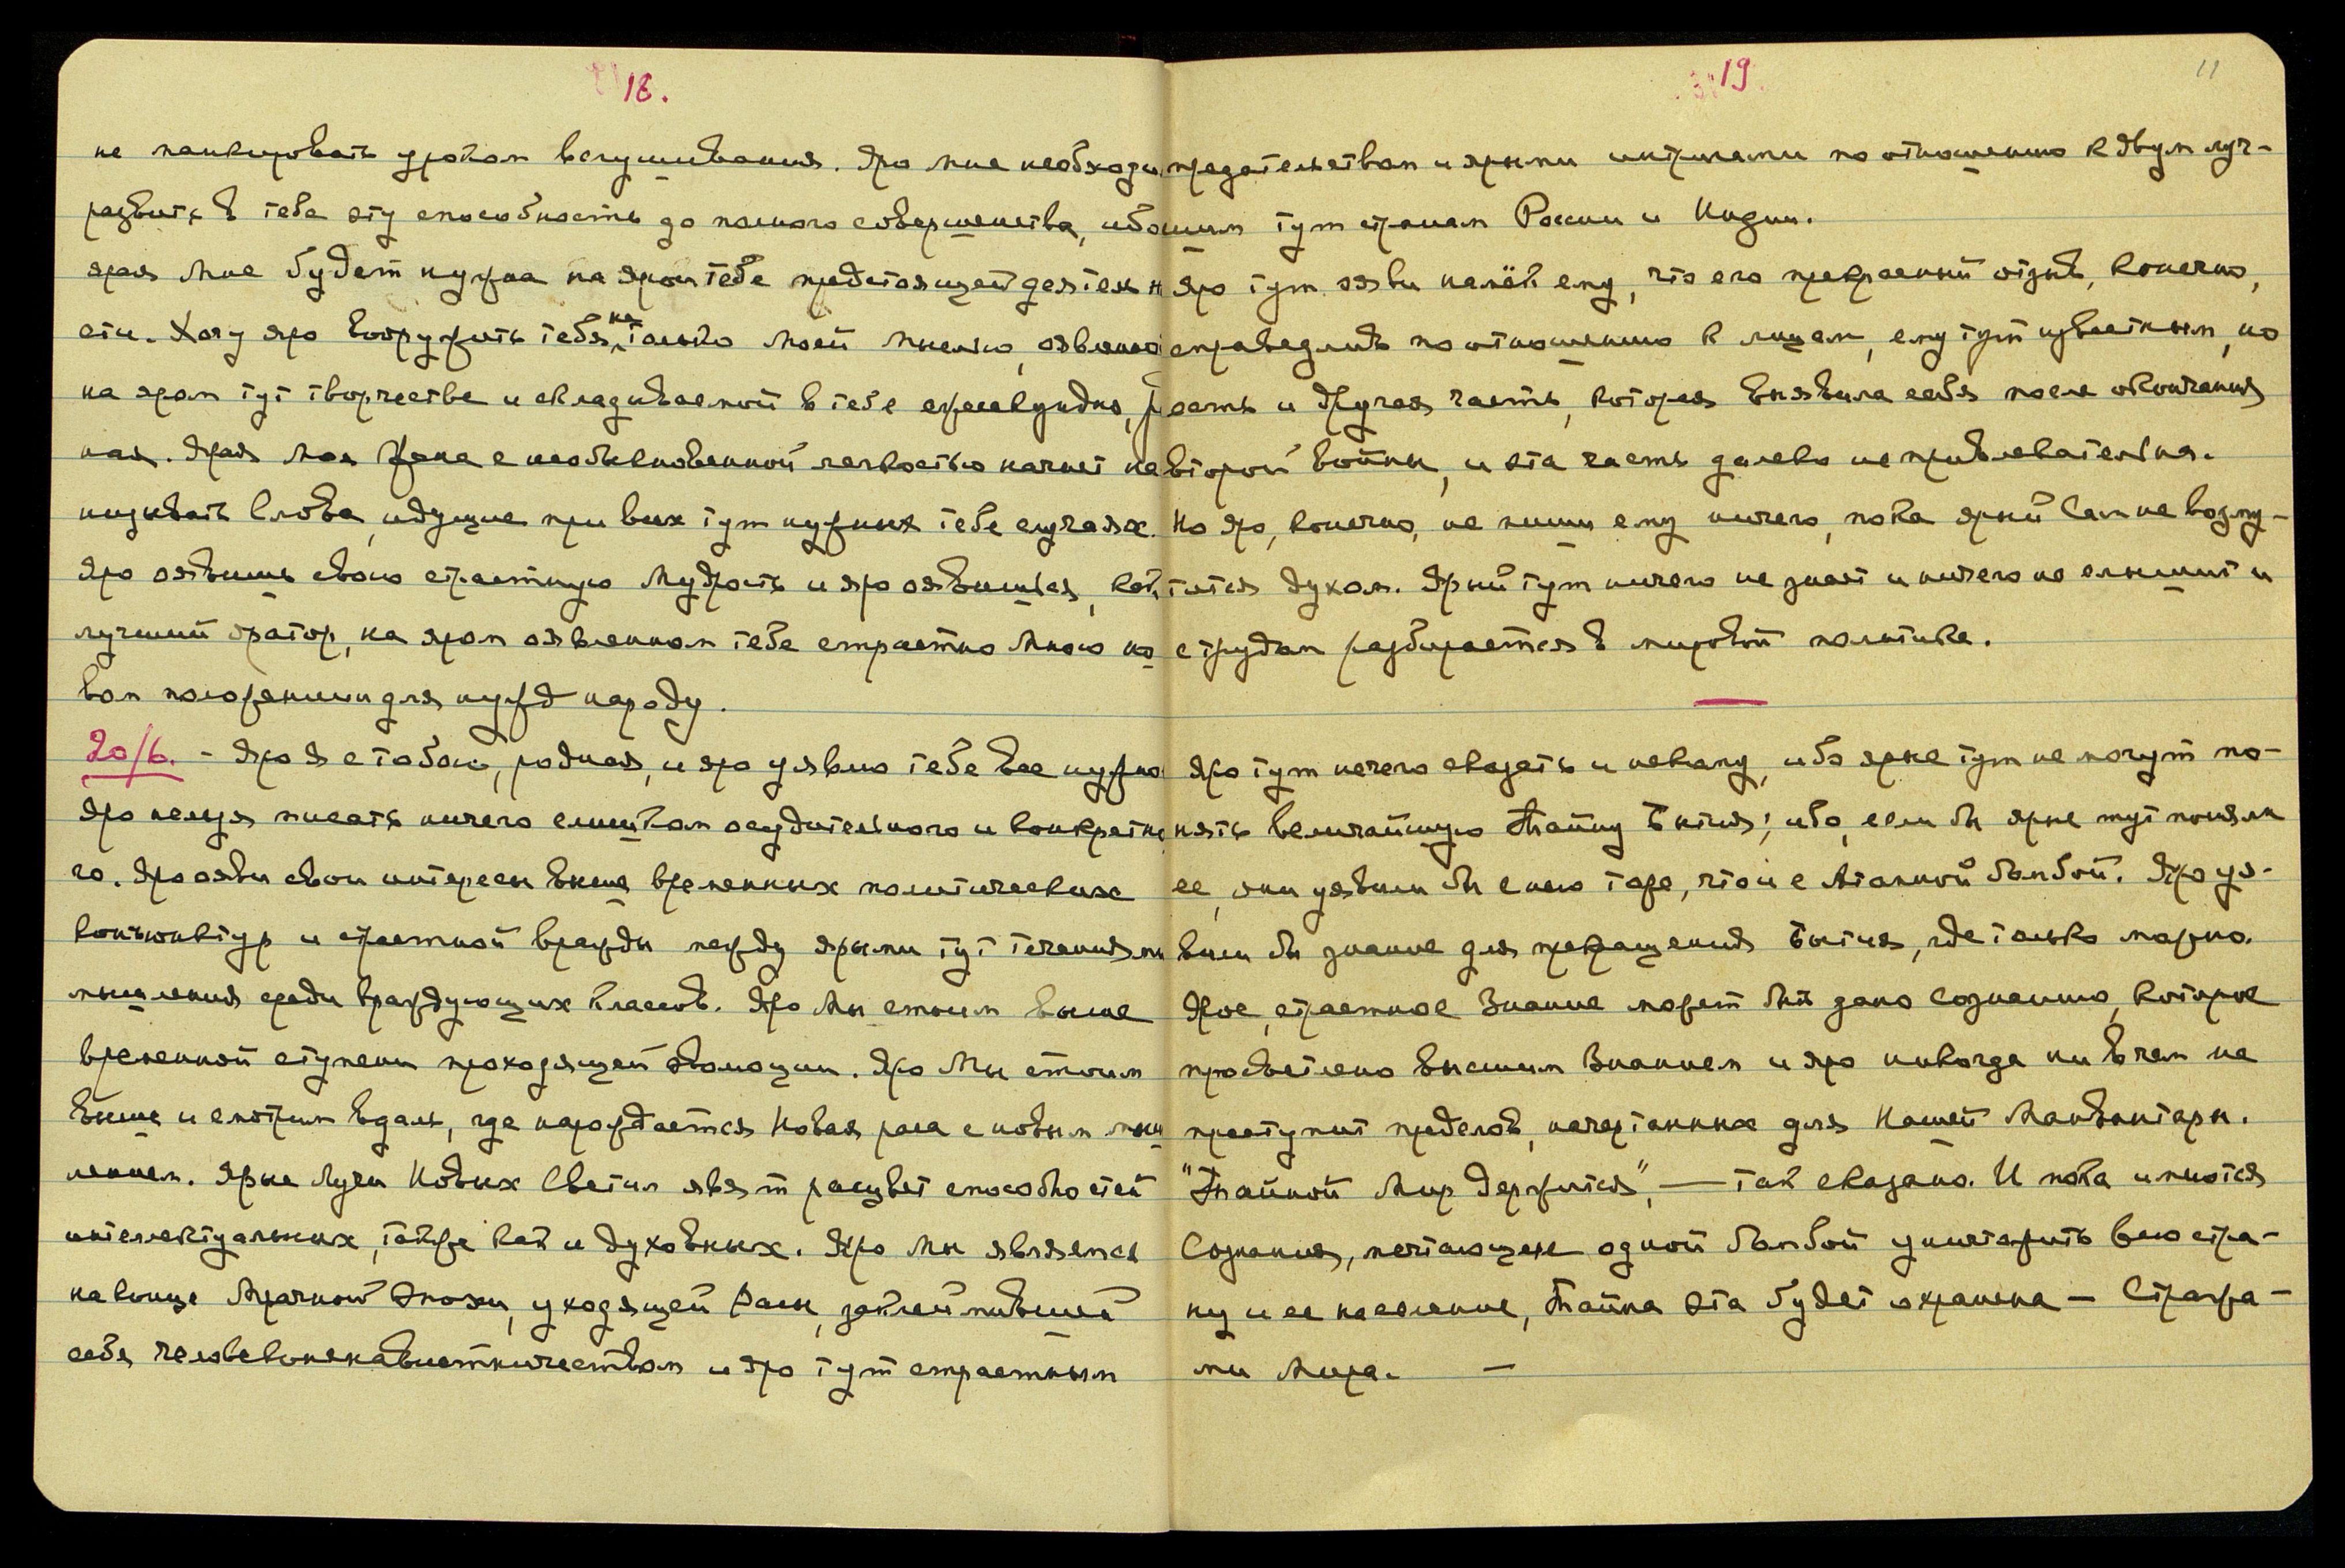 18.
не манкировать уроком вслушивания. Яро мне необходи
развить в тебе эту способность до полного совершенства, ибо
ярая Мне будет нужна на ярой тебе предстоящей деятельн
сти. Хочу яро вооружить тебя не только Моей Мыслью, оявленно
на яром тут творчестве и складываемой в тебе ежесекундно,
ная. Ярая Моя Жена с необыкновенной легкостью начнет на
низывать слова, идущие при всех тут нужных тебе случаях.
Яро оявишь свою страстную Мудрость и яро оявишься, как
лучший оратор, на яром оявленном тебе страстно Мною но
вом положении для нужд народу.
20/6. - Яро Я с тобою, родная, и яро уявлю тебе все нужно
Яро нельзя писать ничего слишком осудительного и конкретно
го. Яро ояви свои интересы выше временных политических
конъюнктур и страстной вражды между ярыми тут течениями
мышления среди враждующих классов. Яро Мы стоим выше
временной ступени проходящей эволюции. Яро Мы стоим
выше и смотрим вдаль, где нарождается Новая раса с новым мыш
лением. Ярые Лучи Новых Светил явят расцвет способностей
интеллектуальных, также как и духовных. Яро мы являемся
на конце Мрачной Эпохи, уходящей Расы, заклеймившей
себя человеконенавистничеством и яро тут страстным
19.
11
предательством и ярыми интригами по отношению к двум луч-
шим тут странам России и Индии.
Яро тут ояви намёк ему, что его прекрасный отзыв, конечно,
справедлив по отношению к лицам, ему тут известным, но
есть и другая часть, которая выявила себя после окончания
второй войны, и эта часть далеко не привлекательна.
Но яро, конечно, не пиши ему ничего, пока ярый Сам не возму-
тится духом. Ярый тут ничего не знает и ничего не слышит и
с трудом разбирается в мировой политике.
Яро тут нечего сказать и некому, ибо ярые тут не могут по-
нять величайшую Тайну Бытия; ибо, если бы ярые тут поняли
ее, они уявили бы с нею то же, что и с Атомной бомбой. Яро уя-
вили бы знание для прекращения Бытия, где только можно.
Ярое, страстное Знание может быть дано Сознанию, которое
просветлено высшим Знанием и яро никогда ни в чем не
преступит пределов, начертанных для Нашей Манвантары.
"Тайной Мир держится", — так сказано. И пока имеются
Сознания, мечтающие одной бомбой уничтожить всю стра-
ну и ее население, Тайна эта будет охранена — Стража-
ми Мира. —